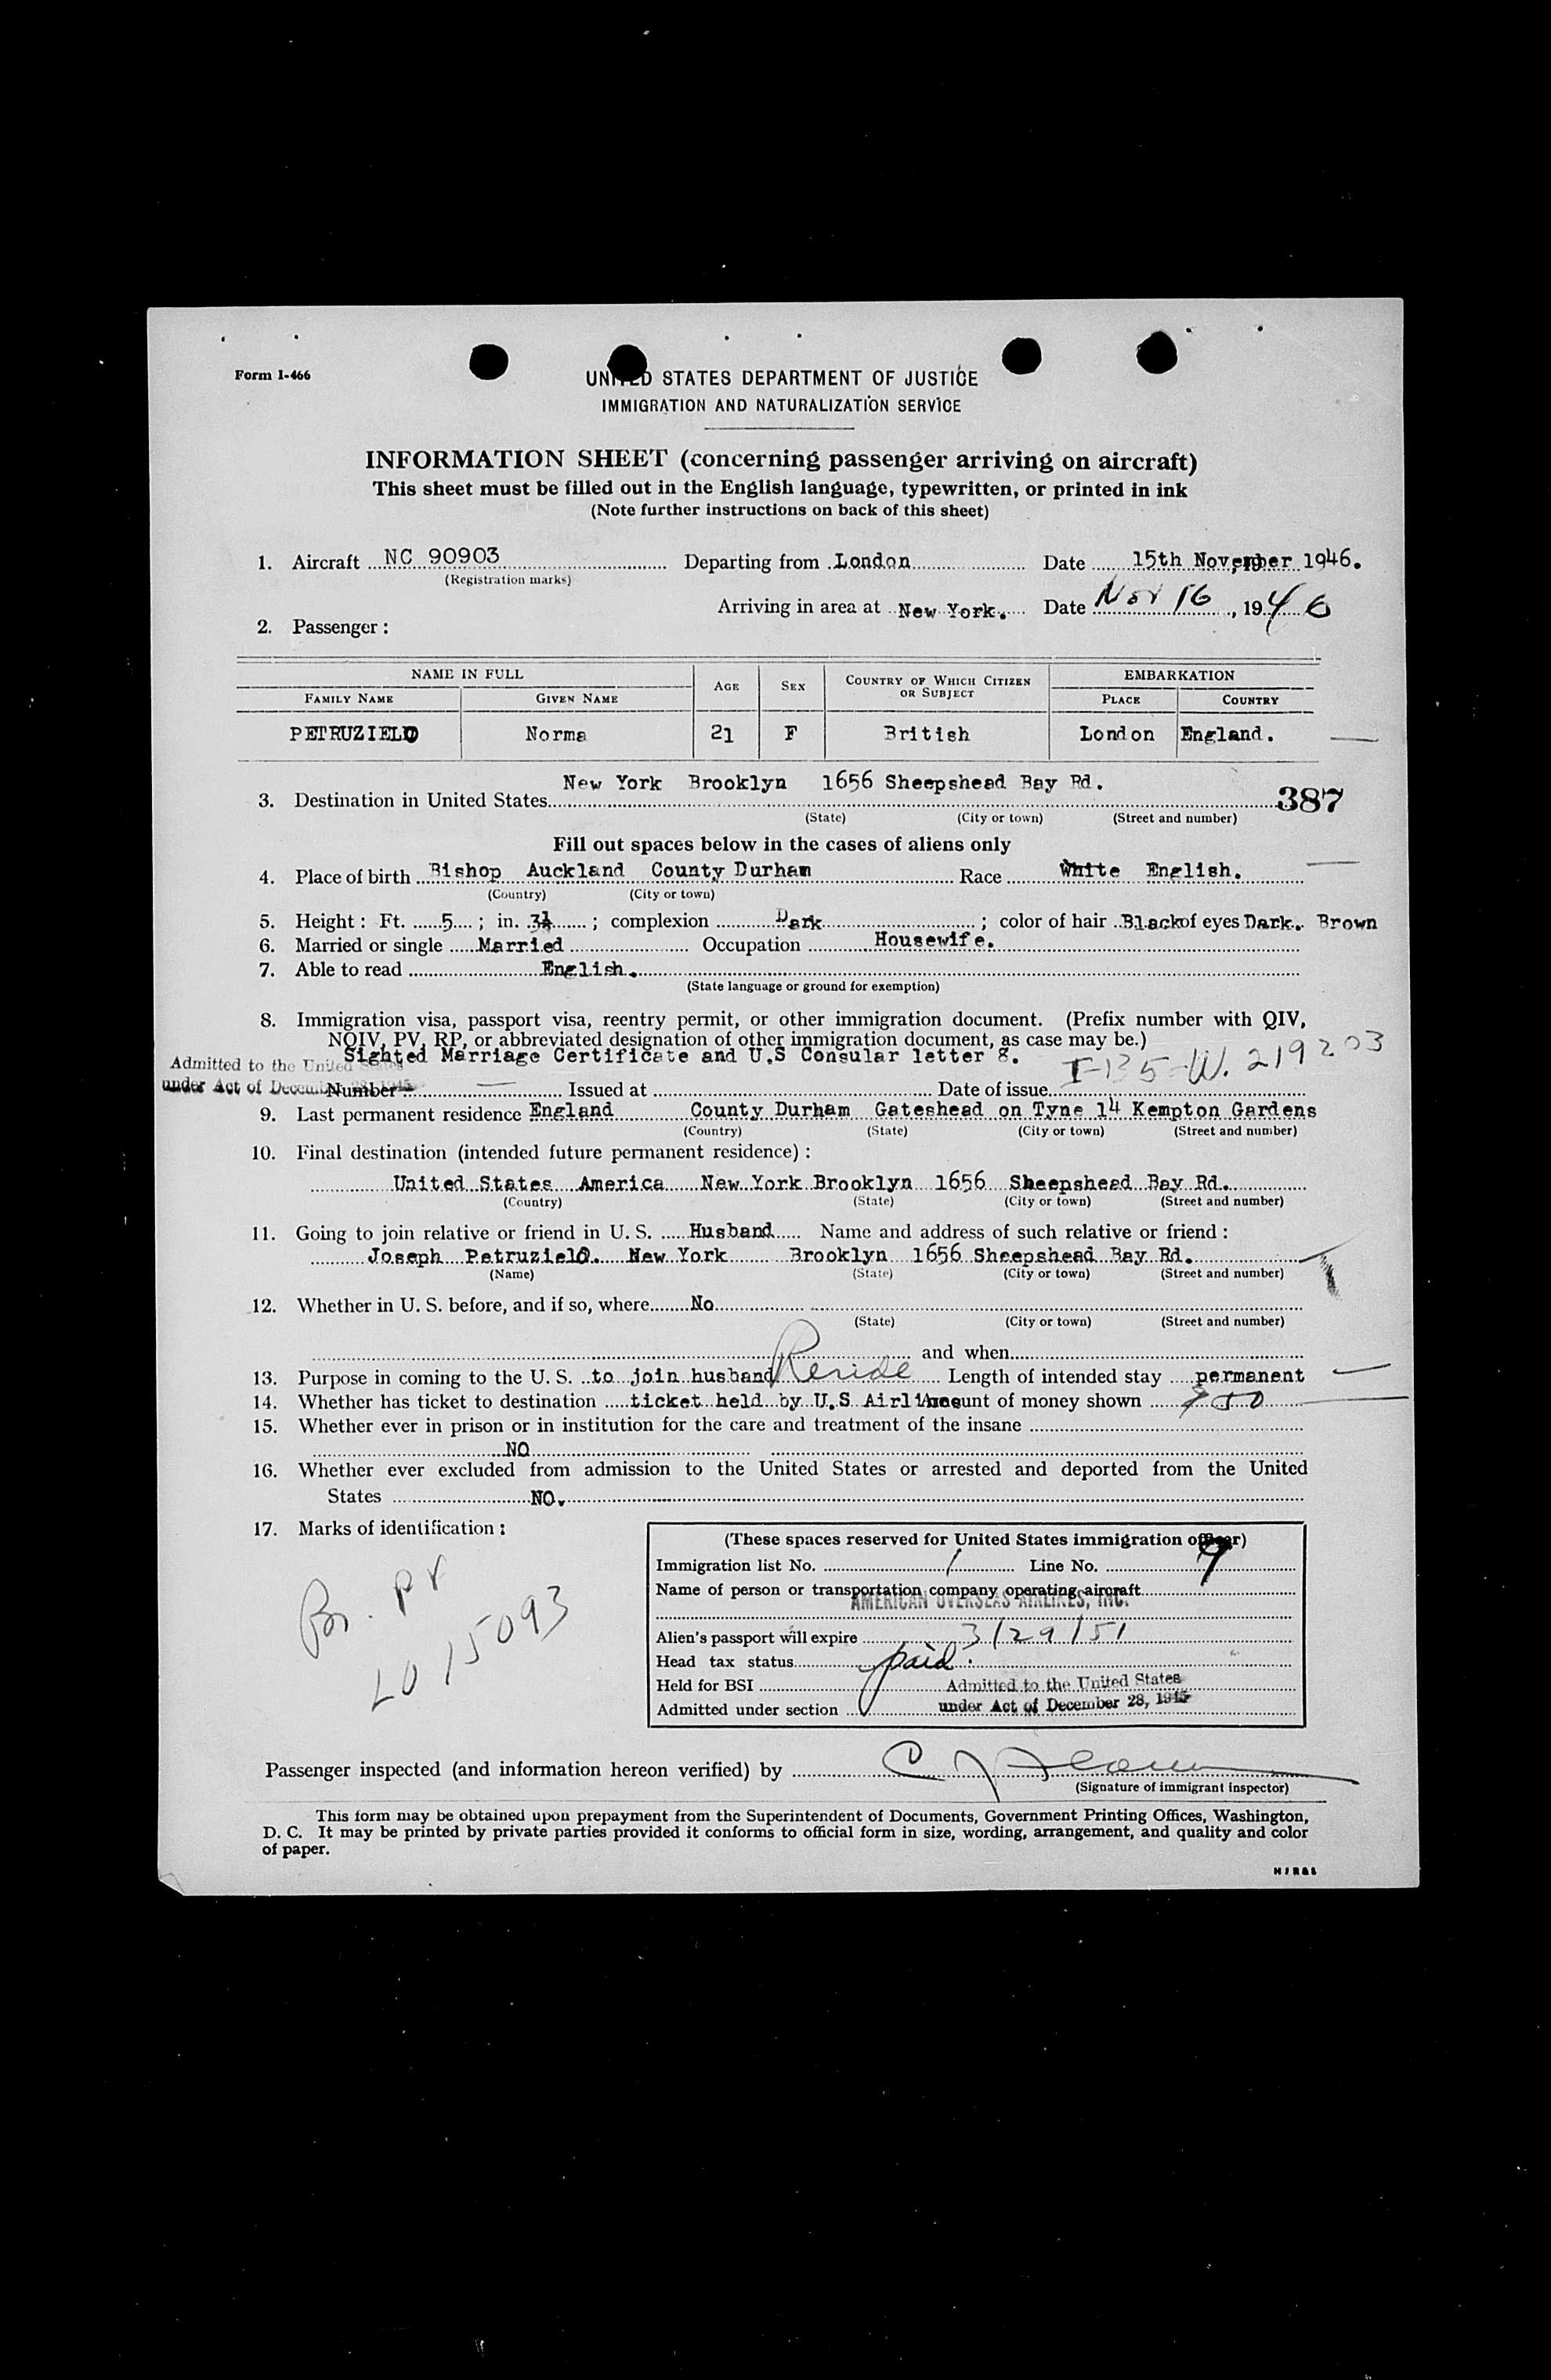 Form I-466
UNITED STATES DEPARTMENT OF JUSTICE
IMMIGRATION AND NATURALIZATION SERVICE
INFORMATION SHEET (concerning passenger arriving on aircraft)
This sheet must be filled out in the English language, typewritten, or printed in ink
(Note further instructions on back of this sheet)
1. Aircraft NC 90903 Departing from London Date 15th November 1946.
(Registration marks)
Arriving in area at New York. Date Nov 16, 1946
2. Passenger:
NAME IN FULL AGE SEX COUNTRY OF WHICH CITIZEN OR SUBJECT EMBARKATION
FAMILY NAME GIVEN NAME PLACE COUNTRY
PETRUZIELO Norma 21 F British London England.
New York Brooklyn 1656 Sheepshead Bay Rd.
3. Destination in United States 387
(State) (City or town) (Street and number)
Fill out spaces below in the cases of aliens only
4. Place of birth Bishop Auckland County Durham Race White English.
(Country) (City or town)
5. Height: Ft. 5; in. 3½; complexion Dark; color of hair Black of eyes Dark. Brown
6. Married or single Married Occupation Housewife.
7. Able to read English.
(State language or ground for exemption)
8. Immigration visa, passport visa, reentry permit, or other immigration document. (Prefix number with QIV,
NQIV, PV, RP, or abbreviated designation of other immigration document, as case may be.)
Sighted Marriage Certificate and U.S Consular letter 8. I-135-W. 219203
Admitted to the United States
under Act of December 28, 1945
Number Issued at Date of issue
9. Last permanent residence England County Durham Gateshead on Tyne 14 Kempton Gardens
(Country) (State) (City or town) (Street and number)
10. Final destination (intended future permanent residence):
United States America New York Brooklyn 1656 Sheepshead Bay Rd.
(Country) (State) (City or town) (Street and number)
11. Going to join relative or friend in U. S. Husband Name and address of such relative or friend:
Joseph Petruzielo. New York Brooklyn 1656 Sheepshead Bay Rd.
(Name) (State) (City or town) (Street and number)
12. Whether in U. S. before, and if so, where No
(State) (City or town) (Street and number)
and when
13. Purpose in coming to the U. S. to join husband Reside Length of intended stay permanent
14. Whether has ticket to destination ticket held by U.S Airlines Amount of money shown $50
15. Whether ever in prison or in institution for the care and treatment of the insane
NO
16. Whether ever excluded from admission to the United States or arrested and deported from the United
States NO.
17. Marks of identification:
Br. PP
LO 15093
(These spaces reserved for United States immigration officer)
Immigration list No. 1 Line No. 9
Name of person or transportation company operating aircraft
AMERICAN OVERSEAS AIRLINES, INC.
Alien's passport will expire 3/29/51
Head tax status paid.
Held for BSI Admitted to the United States
Admitted under section under Act of December 28, 1945
Passenger inspected (and information hereon verified) by
(Signature of immigrant inspector)
This form may be obtained upon prepayment from the Superintendent of Documents, Government Printing Offices, Washington,
D. C. It may be printed by private parties provided it conforms to official form in size, wording, arrangement, and quality and color
of paper.